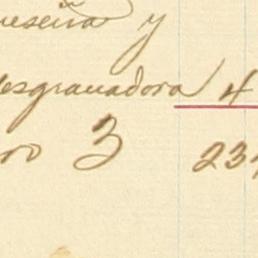 reseña y
desgranadora 4
3 23